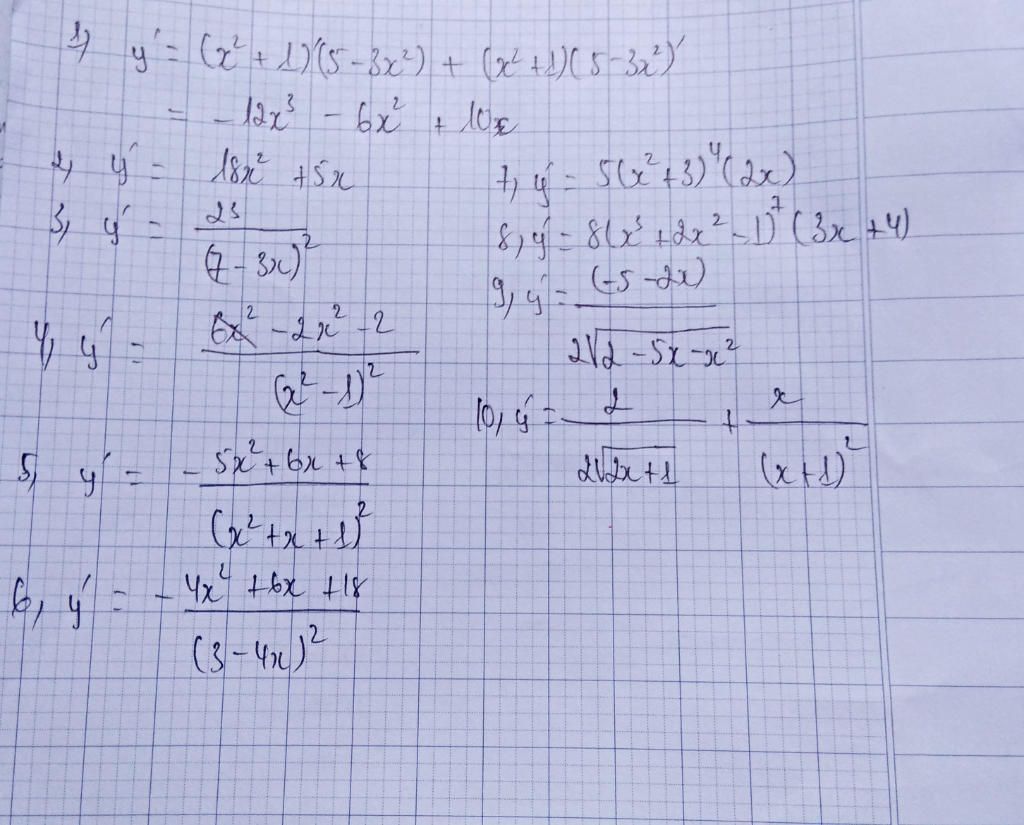 1, y' = (x² + 1)'(5 - 3x²) + (x² + 1)(5 - 3x²)'
= - 12x³ - 6x² + 10x
2, y' = 18x² + 5x
3, y' = 23 / (7 - 3x)²
4, y' = - 2x² - 2 / (x² - 1)²
5, y' = - 5x² + 6x + 8 / (x² + x + 1)²
6, y' = - 4x² + 6x + 18 / (3 - 4x)²
7, y' = 5(x² + 3)⁴(2x)
8, y' = 8(x³ + 2x² - 1)⁷ (3x + 4)
9, y' = (-5 - 2x) / 2√(2 - 5x - x²)
10, y' = 2 / 2√(2x + 1) + x / (x + 1)²